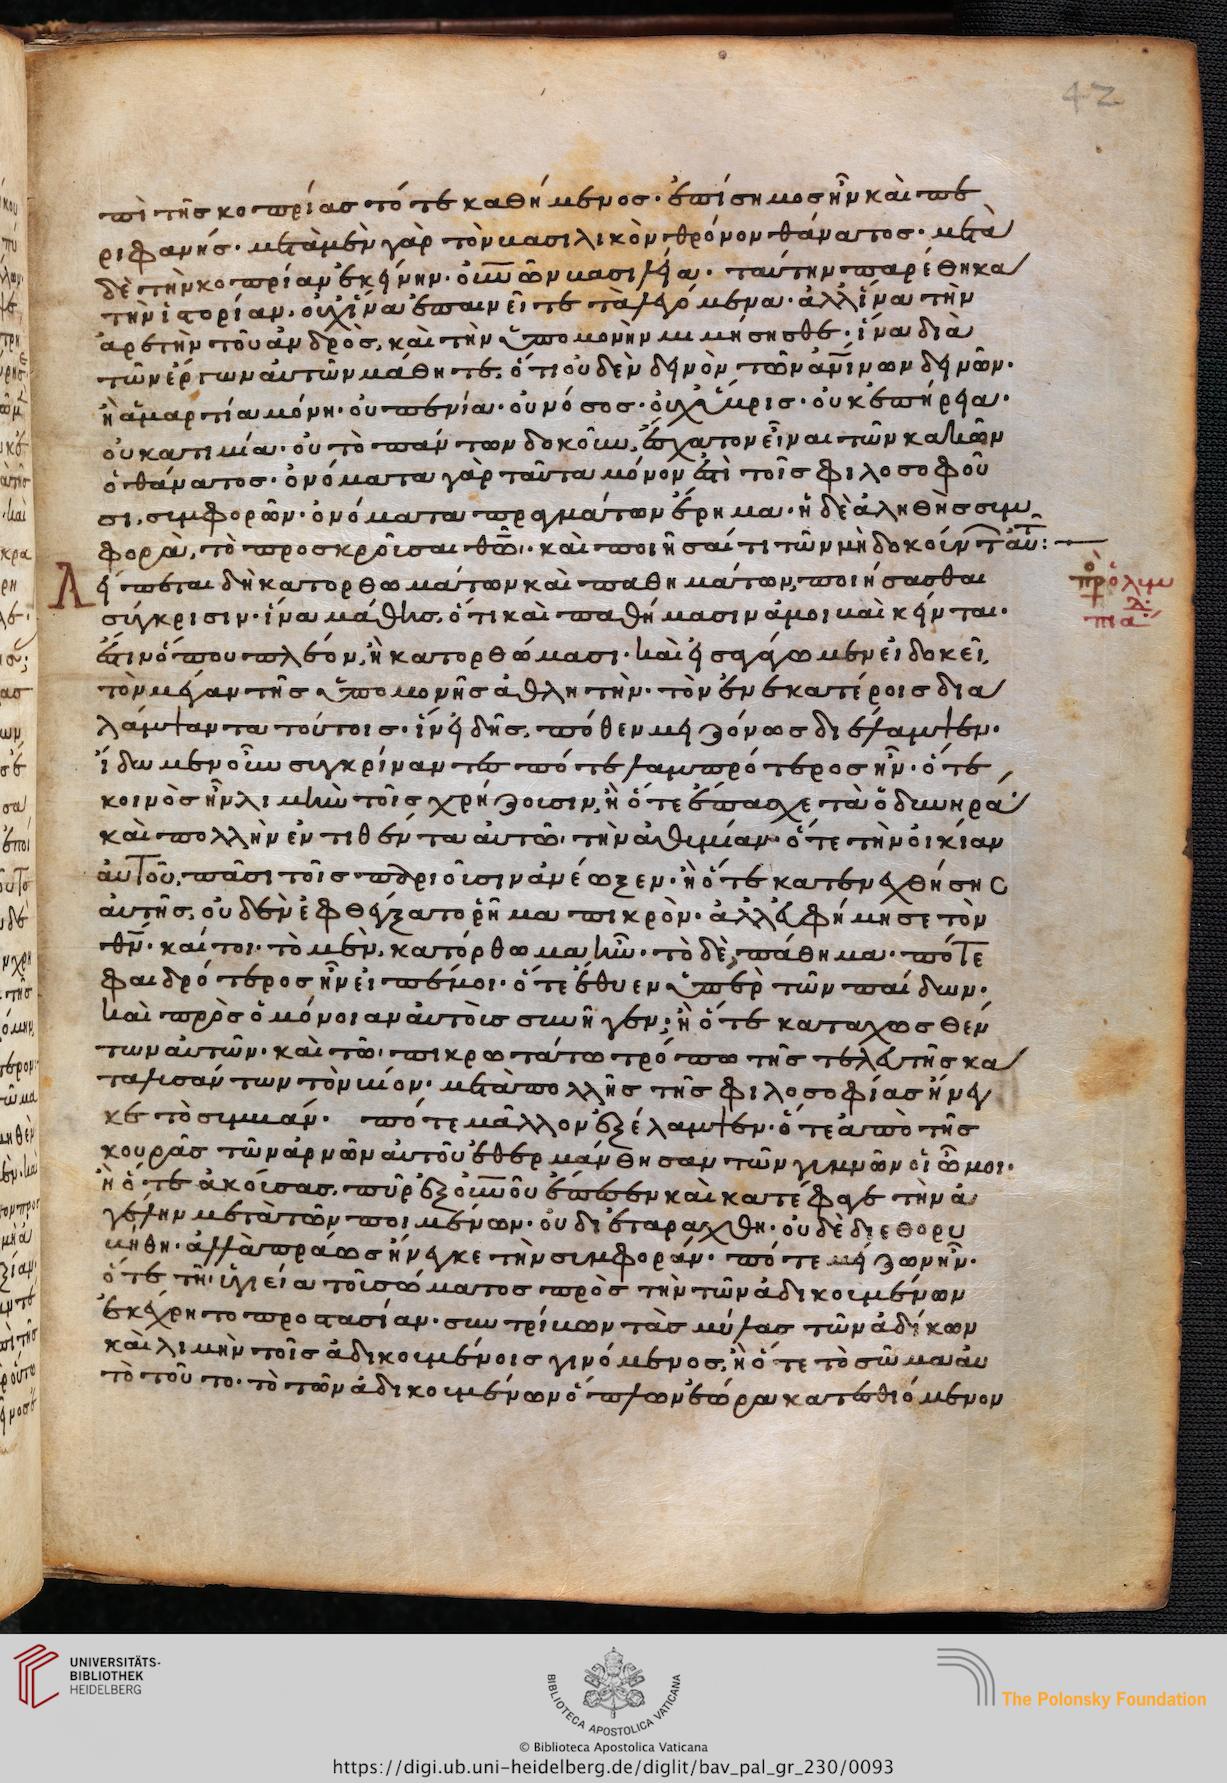 42
πὶ τῆς κοπρίας τότε καθήμενος· ἐπίσημος ἦν καὶ πε
ριφανής· μετὰ μὲν γὰρ τὸν βασιλικὸν θρόνον θάνατος· μετὰ
δὲ τὴν κοπρίαν ἐκείνην· οὐνῶν βασιλεία· ταύτην παρέθηκα
τὴν ἱστορίαν· οὐχ ἵνα ἐπαινεῖτε τὰ λεγόμενα· ἀλλ' ἵνα τὴν
ἀρετὴν τοῦ ἀνδρὸς, καὶ τὴν ὑπομονὴν μιμήσησθε· ἵνα διὰ
τῶν ἔργων αὐτῶν μάθητε, ὅτι οὐδὲν δεινὸν τῶν ἀνίνων δεινῶν·
ἢ ἁμαρτία μόνη· οὐ πενία· οὐ νόσος· οὐχ ὕβρις· οὐκ ἐπήρεια·
οὐκ ἀτιμία· οὐ τὸ πάντων δοκοῦν, ἔσχατον εἶναι τῶν κακῶν
ὁ θάνατος· ὀνόματα γὰρ ταῦτα μόνον ἐστὶ τοῖς φιλοσοφοῦ
σι, συμφορῶν· ὀνόματα πραγμάτων ἔρημα· ἡ δὲ ἀληθὴς συμ
φορὰ, τὸ προσκροῦσαι θῶ· καὶ ποιῆσαί τι τῶν μὴ δοκούντ αὐτ:
Λείπεται δὴ κατορθωμάτων καὶ παθημάτων, ποιήσασθαι
σύγκρισιν· ἵνα μάθῃς, ὅτι καὶ παθήμασιν ἀμοιβαὶ κεῖνται·
ἔστιν ὅπου πλέον, ἢ κατορθώμασι· καὶ εἰσαγάγωμεν εἰ δοκεῖ,
τὸν μέγαν τῆς ὑπομονῆς ἀθλητὴν· τὸν ἐν ἑκατέροις δια
λάμψαντα τούτοις· ἵν' εἰδῇς, πόθεν μειζόνως διέλαμψεν·
ἴδωμεν οὖν συγκρίναντες πότε λαμπρότερος ἦν· ὅτε
κοινὸς ἦν λιμὴν τοῖς χρήζουσιν, ἢ ὅτε ἔπασχε τὰ ὀδυνηρά
καὶ πολλὴν ἐντιθέντα αὐτῶ, τὴν ἀθυμίαν· ὅτε τὴν οἰκίαν
αὐτοῦ, πᾶσι τοῖς παριοῦσιν ἀνέωξεν· ἢ ὅτε κατενεχθήσης
αὐτῆς, οὐδὲν ἐφθέγξατο ῥῆμα πικρὸν· ἀλλ' εὐφήμησε τὸν
θν· καίτοι· τὸ μὲν, κατόρθωμα ἦν· τὸ δὲ, πάθημα· πότε
φαιδρότερος ἦν εἰπέ μοι· ὅτε ἔθυεν ὑπὲρ τῶν παίδων·
καὶ πρὸς ὁμόνοιαν αὐτοὺς συνῆγεν; ἢ ὅτε καταχωσθέν
των αὐτῶν· καὶ τῶ πικρωτάτω τρόπω τῆς τελευτῆς κα
ταλυσάντων τὸν βίον· μετὰ πολλῆς τῆς φιλοσοφίας ἤνεγ
κε τὸ συμβάν· πότε μᾶλλον ἐξέλαμψεν· ὅτε ἀπὸ τῆς
κουρᾶς τῶν ἀρνῶν αὐτοῦ ἐθερμάνθησαν τῶν γυμνῶν οἱ ὦμοι·
ἢ ὅτε ἀκούσας, πῦρ ἐξ οὐνοῦ ἔπεσεν καὶ κατέφαγε τὴν ἀ
γέλην μετὰ τῶν ποιμένων· οὐ διεταράχθη· οὐδὲ διεθορυ
βήθη· ἀλλὰ πράως ἤνεγκε τὴν συμφοράν· πότε μείζων ἦν·
ὅτε τῆ ὑγιεία τοῦ σώματος πρὸς τὴν τῶν ἀδικουμένων
ἐκέχρητο προστασίαν· συντρίβων τὰς μύλας τῶν ἀδίκων
καὶ λιμὴν τοῖς ἀδικουμένοις γινόμενος, ἢ ὅτε τὸ σῶμα αὐ
τὸ τοῦτο· τὸ τῶν ἀδικουμένων ὅπλον ἑώρα κατεσθιόμενον
UNIVERSITÄTS-
BIBLIOTHEK
HEIDELBERG
BIBLIOTECA APOSTOLICA VATICANA
The Polonsky Foundation
© Biblioteca Apostolica Vaticana
https://digi.ub.uni-heidelberg.de/diglit/bav_pal_gr_230/0093